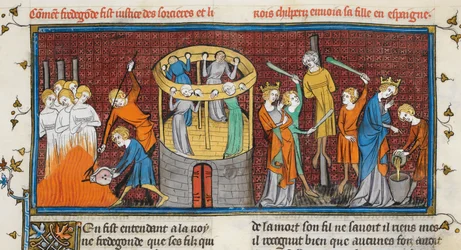 Cõment fredegõde fist iustice des sorcieres et li
rois chilperi envoia sa fille en espaigne.
En fist entendant a la roy
ne fredegonde que ses filz qui
de sa mort son fil ne savoit il riens mes
il recognut bien que aucunes foiz avoit